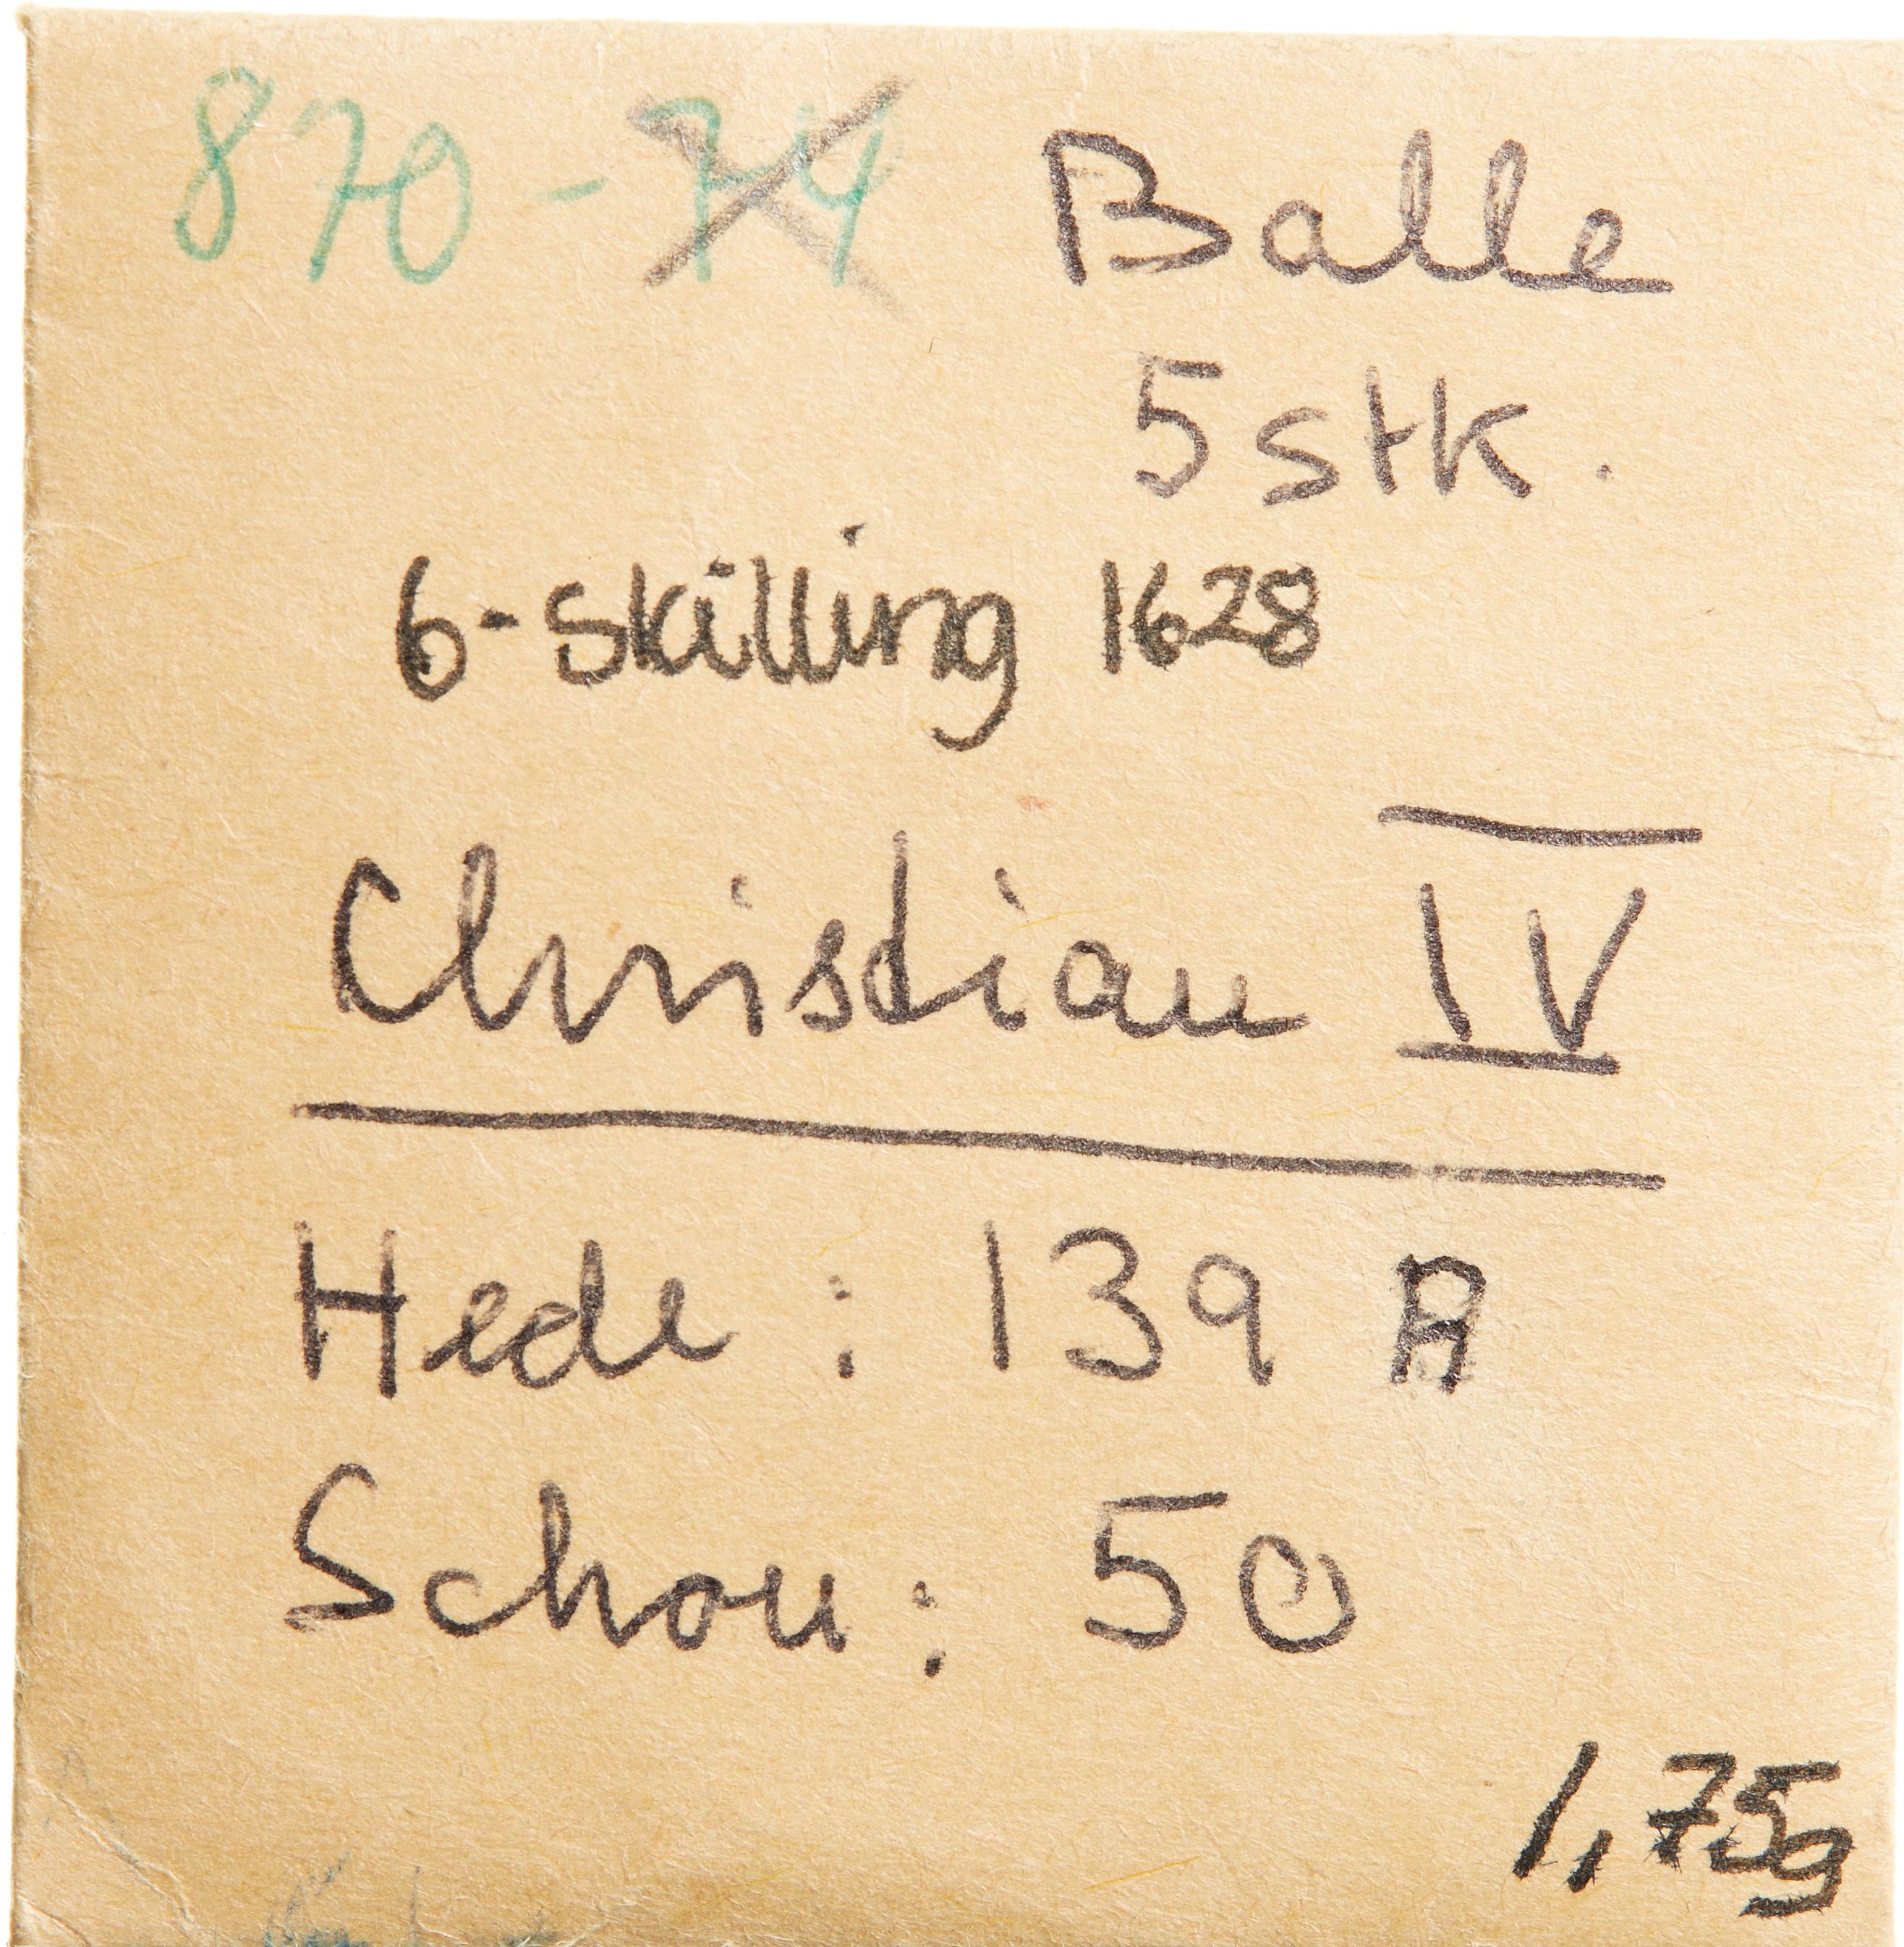 870-74 Balle
5 stk.
6-skilling 1628
Christian IV
Hede: 139 A
Schou: 50
1,75g